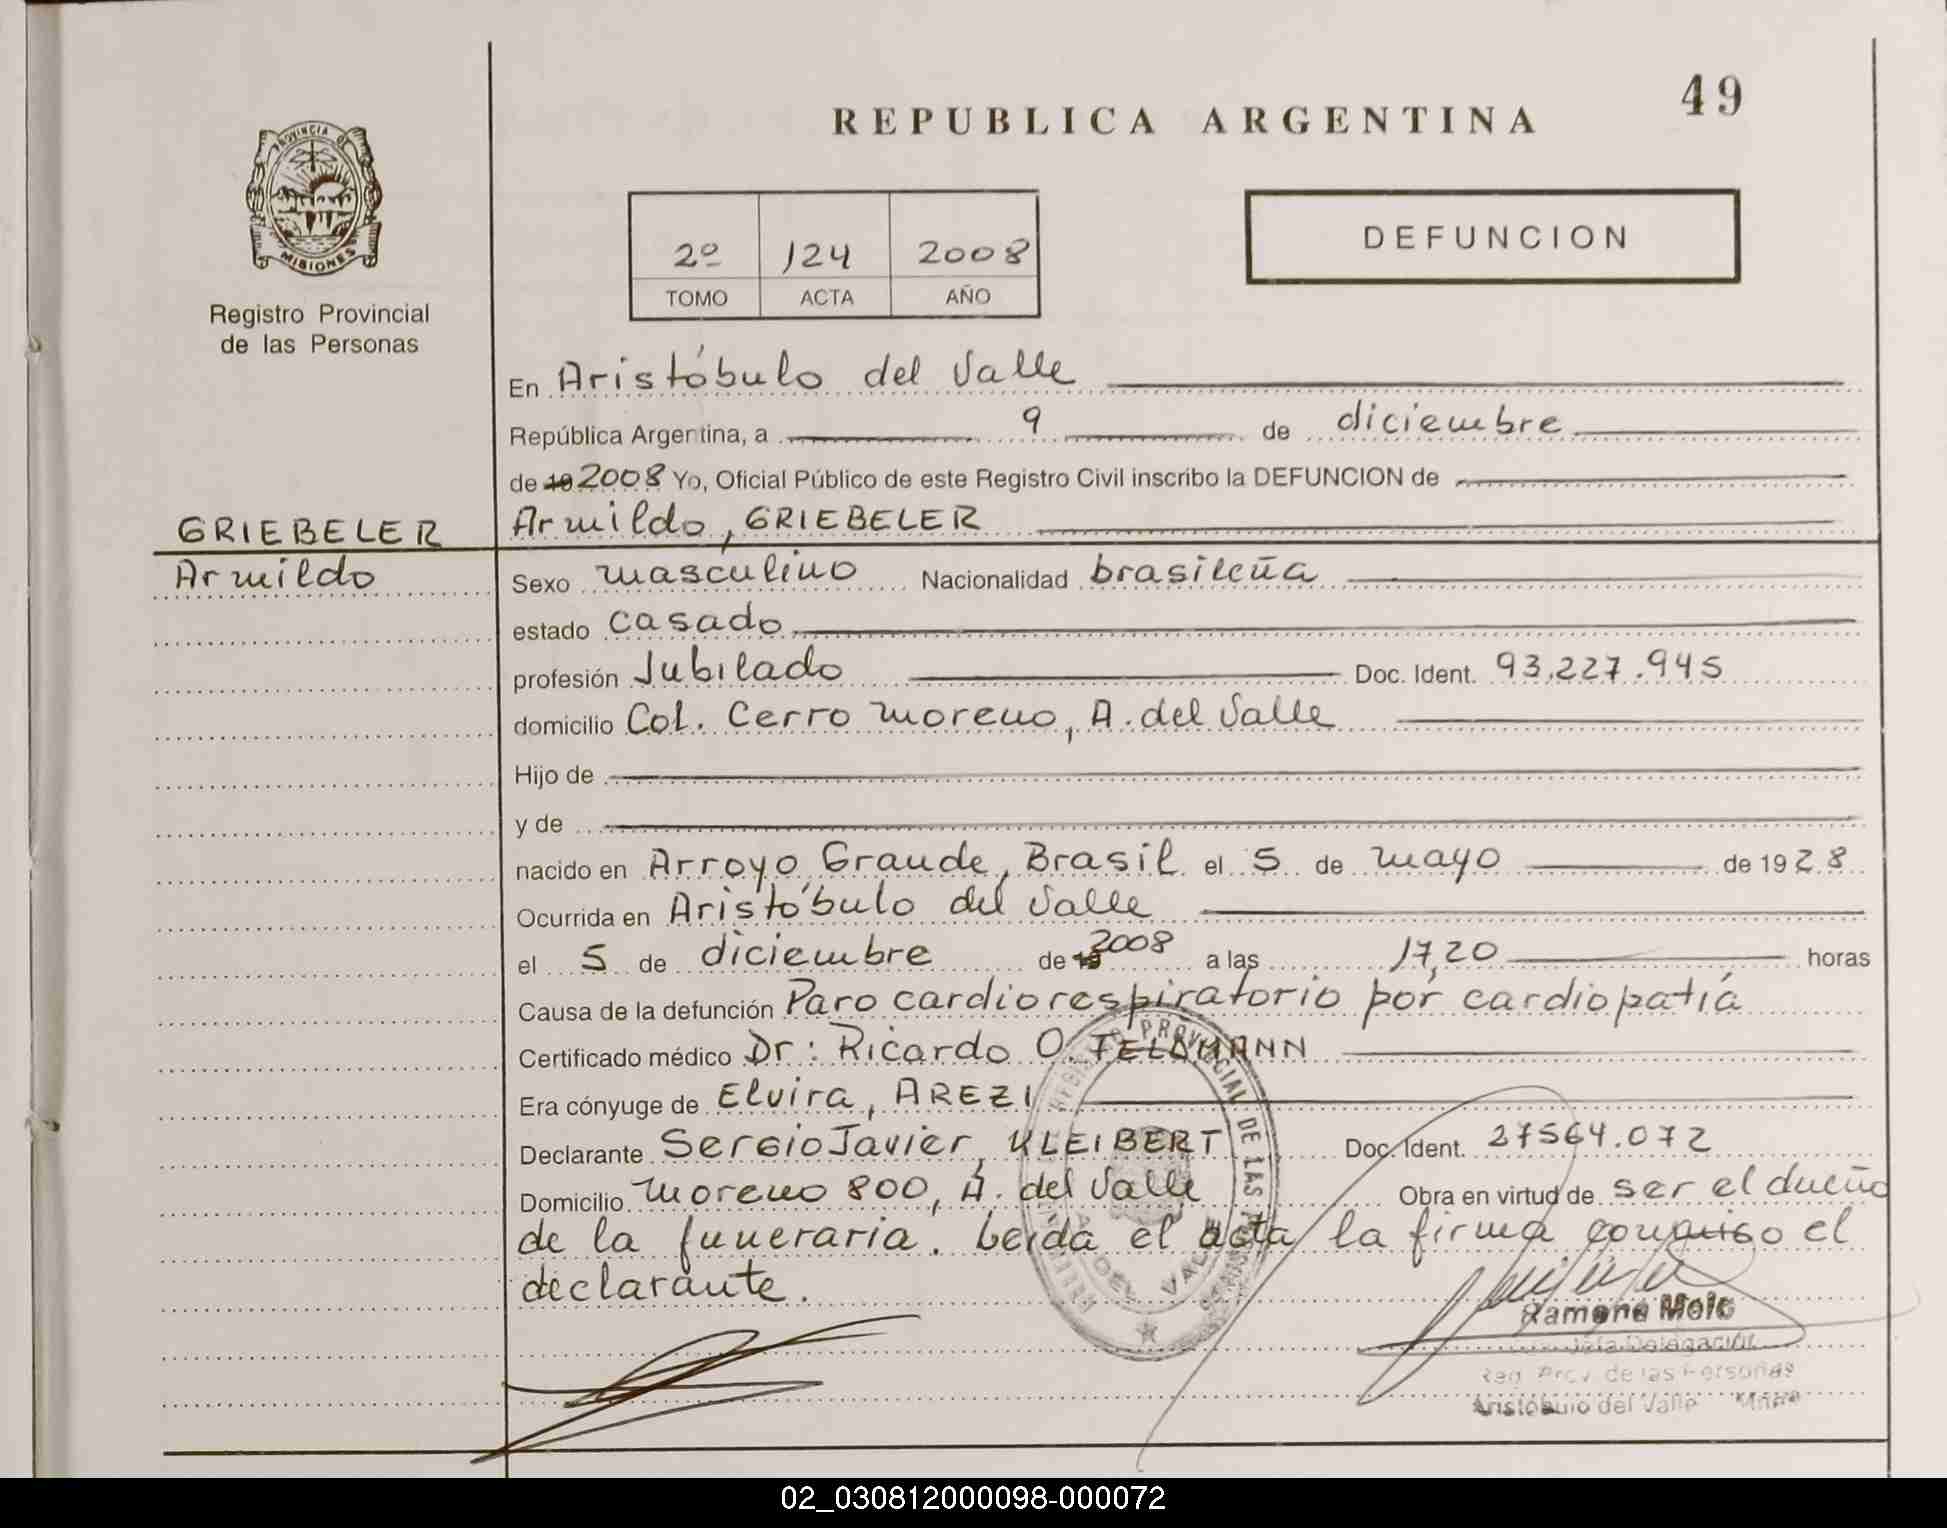 49
REPUBLICA ARGENTINA
PROVINCIA DE
MISIONES
Registro Provincial
de las Personas
2º 124 2008
TOMO ACTA AÑO
DEFUNCION
En Aristóbulo del Valle
República Argentina, a 9 de diciembre
de 19 2008 Yo, Oficial Público de este Registro Civil inscribo la DEFUNCION de
GRIEBELER
Armildo
Armildo, GRIEBELER
Sexo masculino Nacionalidad brasileña
estado casado
profesión Jubilado Doc. Ident. 93.227.945
domicilio Col. Cerro Moreno, A. del Valle
Hijo de
y de
nacido en Arroyo Grande, Brasil el 5 de mayo de 1928
Ocurrida en Aristóbulo del Valle
el 5 de diciembre de 19 2008 a las 17,20 horas
Causa de la defunción Paro cardiorespiratorio por cardiopatía
Certificado médico Dr: Ricardo O. FELDMANN
Era cónyuge de Elvira, AREZI
Declarante Sergio Javier, KLEIBERT Doc. Ident. 27564.072
Domicilio Moreno 800, A. del Valle Obra en virtud de ser el dueño
de la funeraria. Leida el acta la firma conmigo el
declarante.
PROVINCIAL DE LAS
DEL VALLE
Ramona
Jefa Delegación
Reg. Prov. de las Personas
Aristóbulo del Valle
02_030812000098-000072